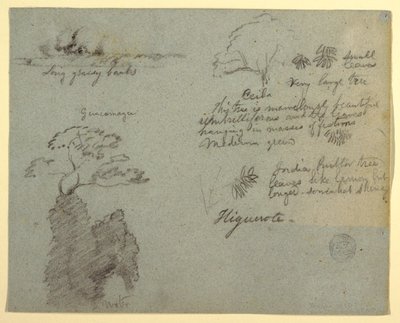 Long grassy banks
Guacamaya
small
leaves
Very large tree
Ceiba
This tree is marvelously beautiful
umbelliferous and the leaves
hanging in masses festoons
Medium green
India Rubber tree
leaves like Lemon but
longer - somewhat shiny
Higuerote -